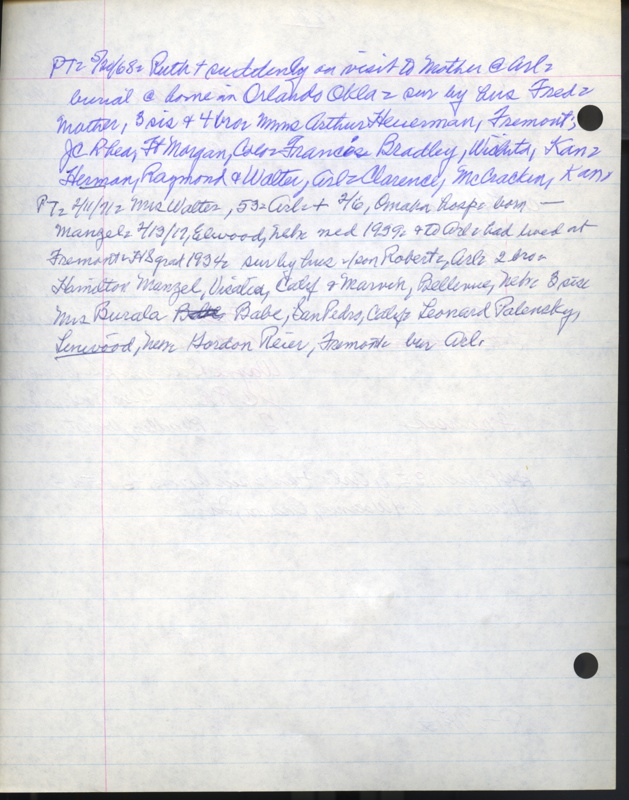 PT= 5/20/68= Ruth + suddenly on visit to Mother @ Arl=
burial @ home in Orlando Okla= sur by hus Fred=
Mother, 3 sis & 4 bro= Mmes Arthur Heuerman, Fremont;
JC Rhea, Ft Morgan, Colo= Francis Bradley, Wichita, Kan=
Herman, Raymond & Walter, Arl= Clarence, McCracken, Kan=
PT= 2/11/71= Mrs Walter, 53= Arl= + 2/6, Omaha hosp= born —
Manzel= 2/13/17, Elwood, Nebr med 1939= & to Arl= had lived at
Fremont= HS grad 1934= sur by hus son Robert, Arl= 2 bro=
Hamilton Manzel, Visalia, Calif & Marvin, Bellevue, Nebr 3 sis=
Mrs Burala Babe, San Pedro, Calif= Leonard Palensky,
Linwood, Gordon Reier, Fremont= bur Arl.